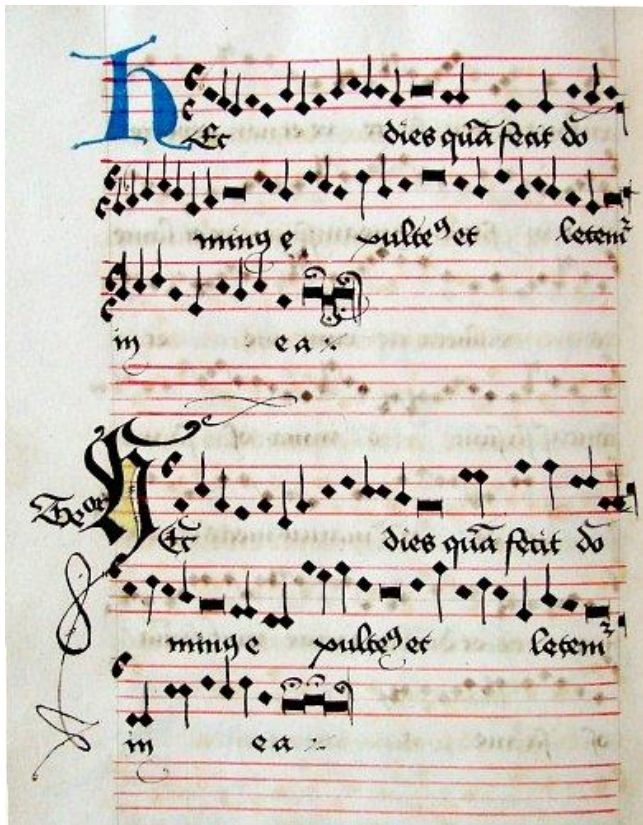 Hec dies quã fecit dõ
minꝰ e xulteꝰ et letemꝛ
in ea
Hec dies quã fecit dõ
minꝰ e xulteꝰ et letemꝛ
in ea